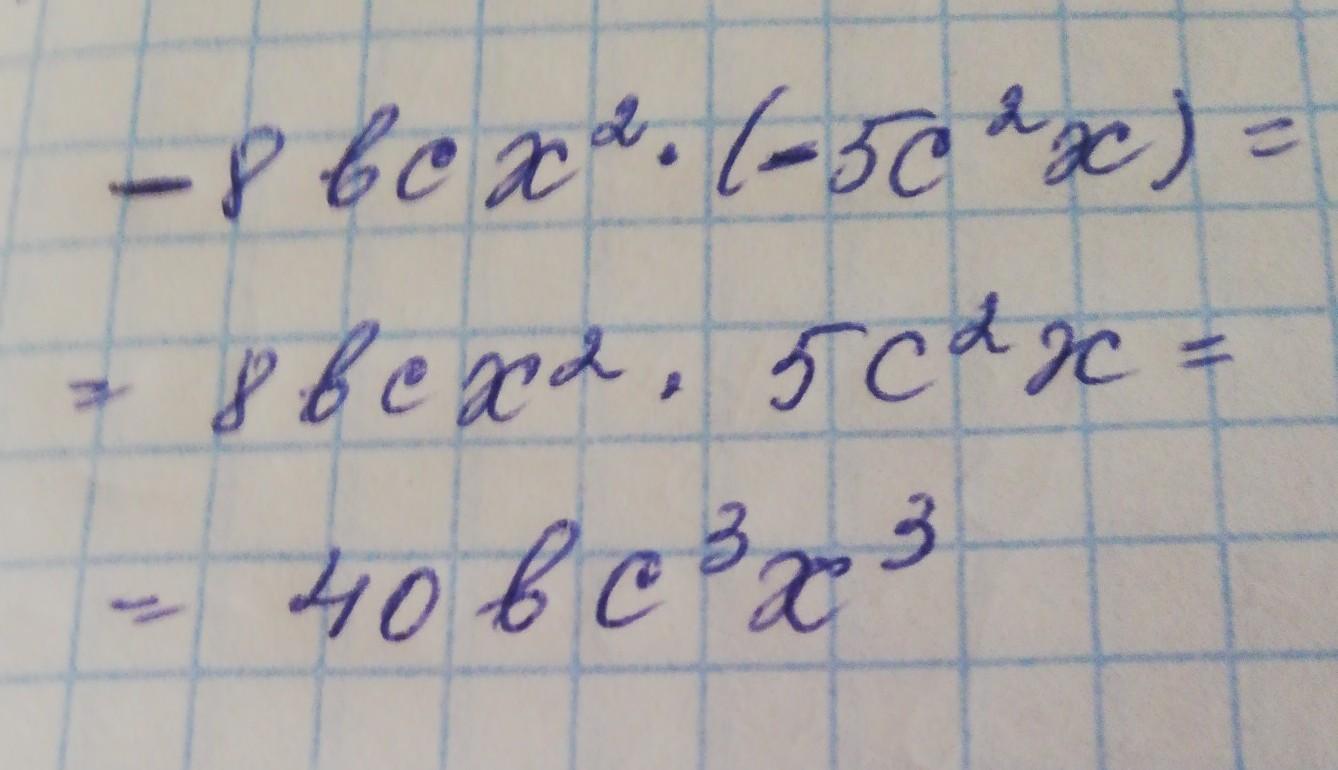 -8bcx²·(-5c²x)=
=8bcx²·5c²x=
=40bc³x³